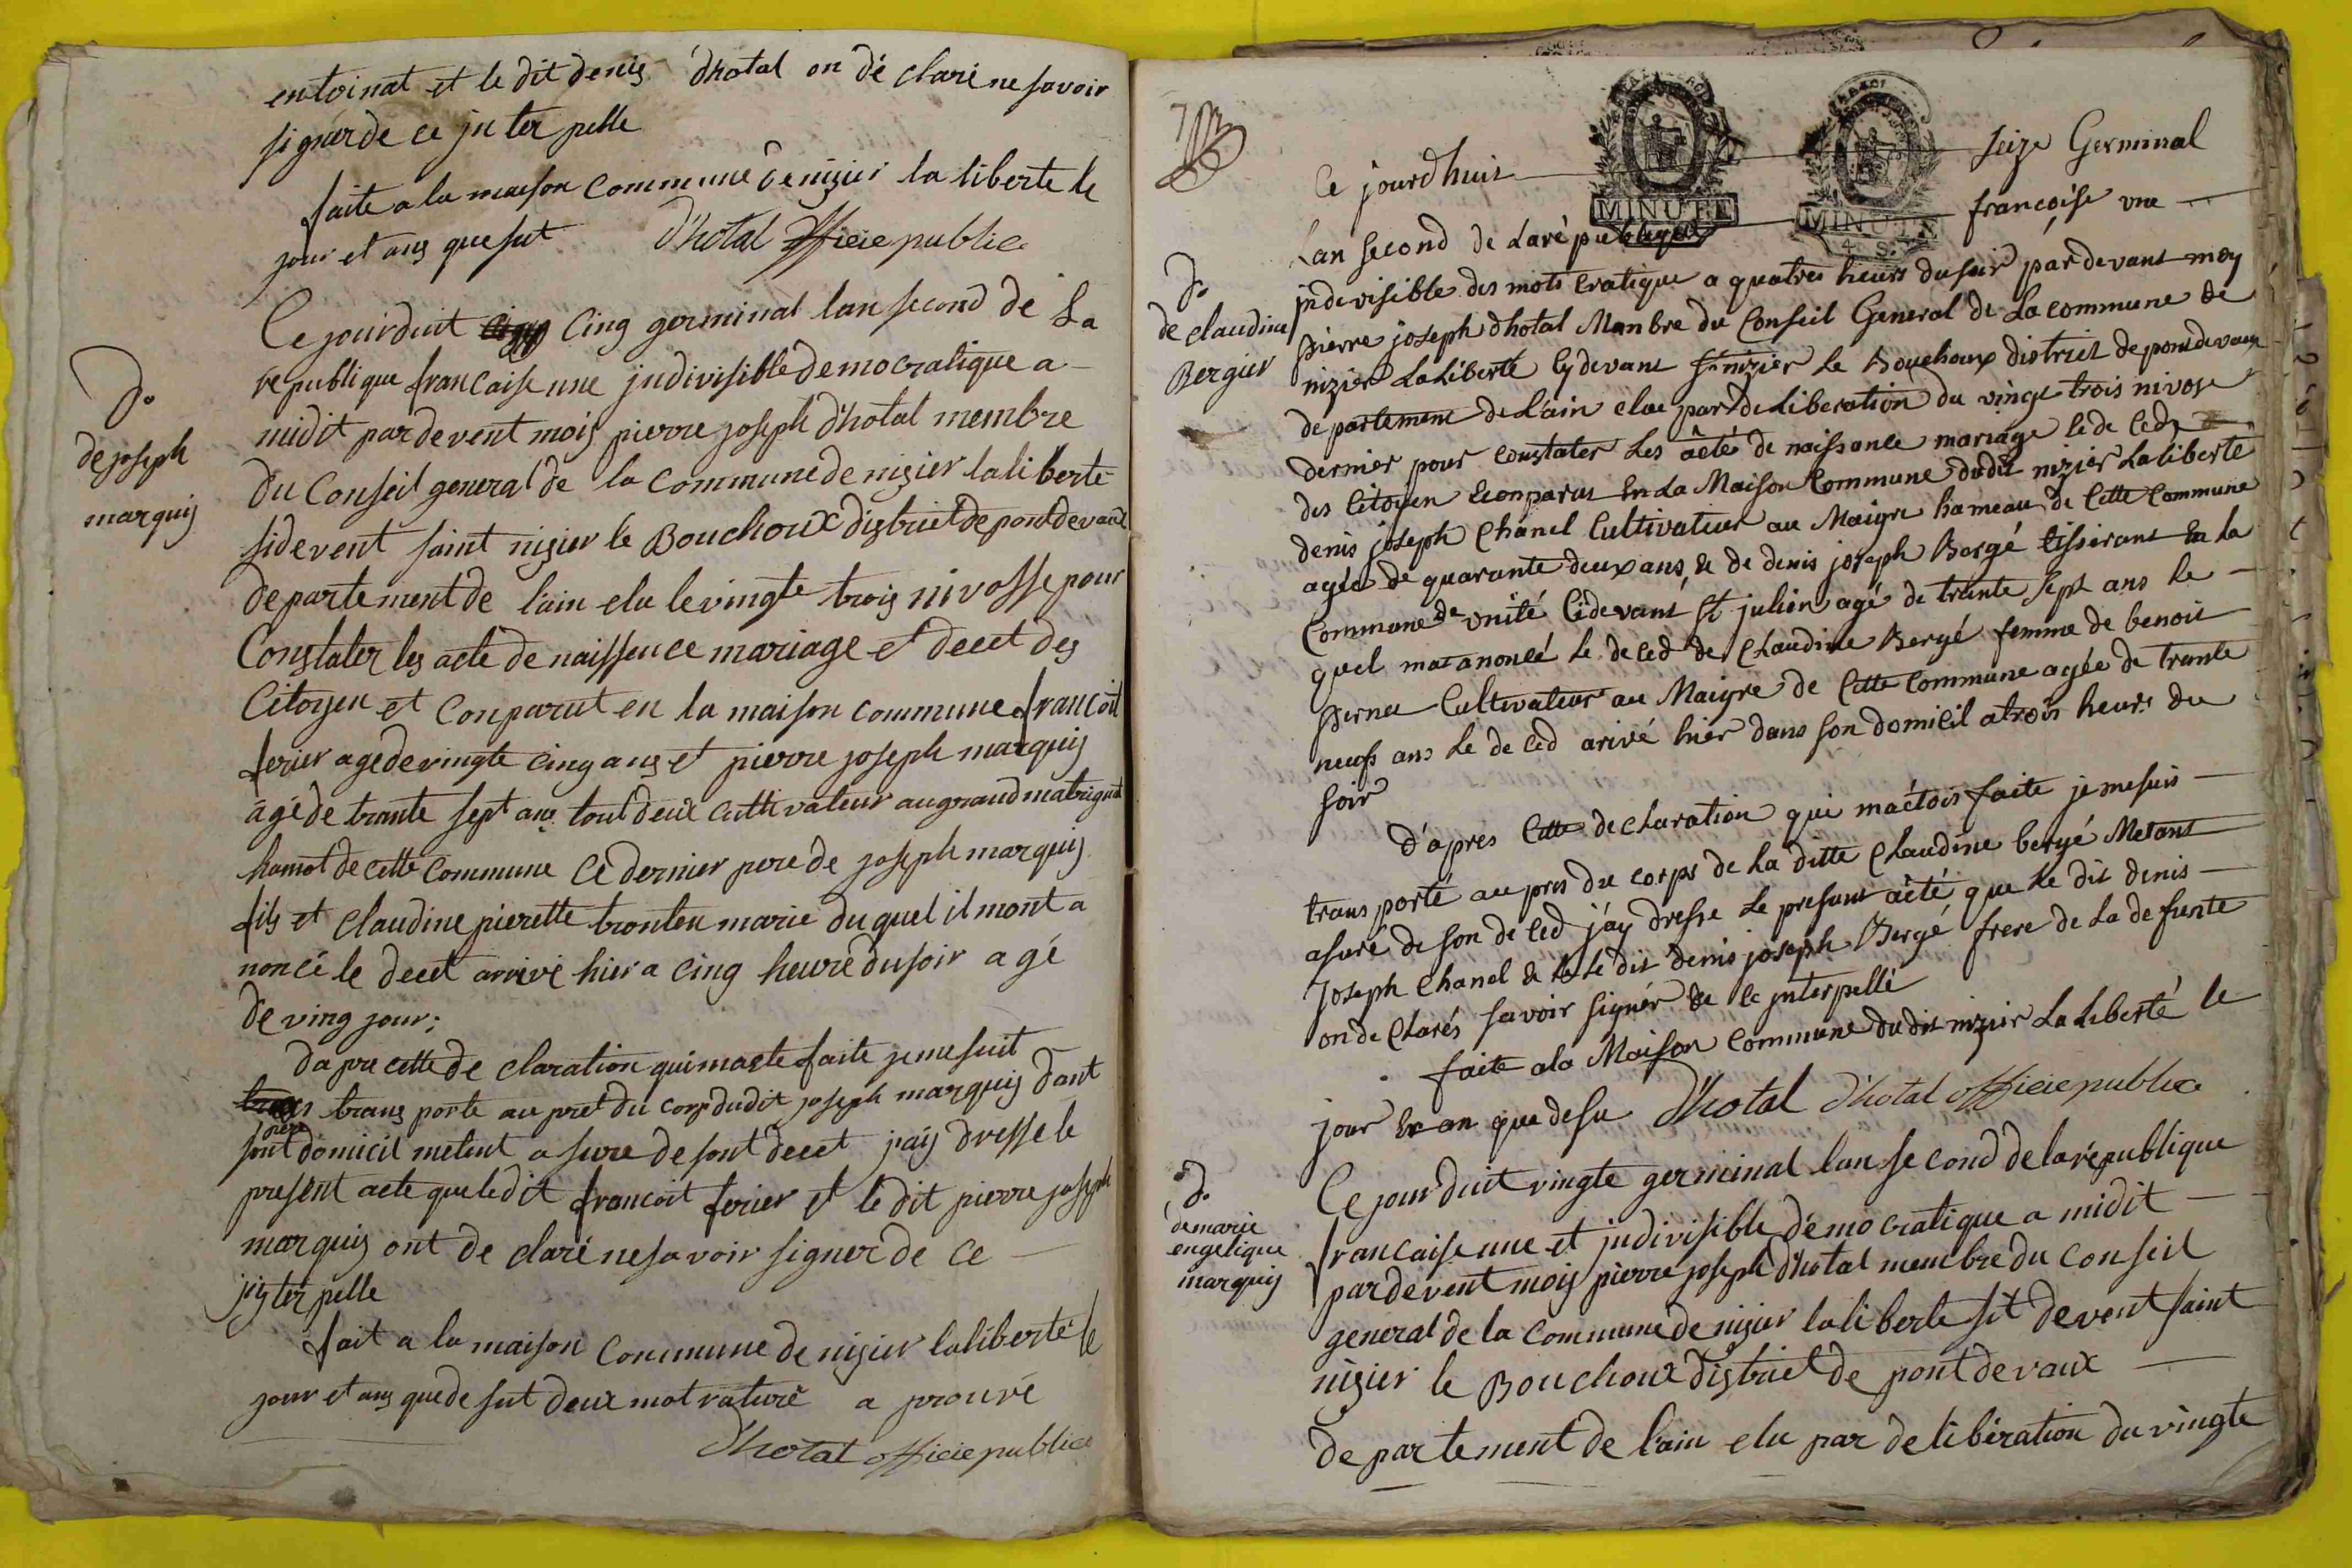 entoinat et le dit denis dhotal on dé claré ne savoir
signér de ce jn ter pelle
faite a la maison commune de nizier la liberte le
jour et ans que sut d'hotal officie public
Do
de joseph
marquis
Ce jourduit cinq germinal lan second de La
re publique francaise une jndivisible democratique a
midit par devent mois pierre joseph d'hotal membre
du Conseil general de la commune de nizier la liberté
sidevent saint nizier le Bouchoux district de pont de vaux
departement de l'ain elu le vingte trois nivosse pour
Constater les acte de naissence mariage et decet des
Citoyen et Conparut en la maison commune francoit
ferier age de vingte cinq ans et pierre joseph marquis
âgé de trante sept ans tout deux cultivateur au grand matrignat
hamot de cette commune Ce dernier pere de joseph marquis
fils et claudine pierette tronten marie du quel il mont a
noncé le decet arrivé hier a cinq heure du soir agé
de ving jour;
da pre cette de claration qui maete faite je me suit
trans porte au pret du corp dudit joseph marquis dant
sont pere domicil metent a sure de sont decet j'aij dressé le
present acte que le dit francoit ferier et le dit pierre joseph
marquis ont de claré ne savoir signer de ce
jnter pelle
fait a la maison commune de nizier la liberté le
jour et ans que de sut deux mot raturé a prouvé
D'hotal officie public
7
MINUTE
MINUTE
4. S.
Ce jourdhuit seize Germinal
Lan second de La ré publique francoise vne
jndevisible des mots cratique a quatres heurs du soir pardevant moy
Do
de claudine
Bergier
pierre joseph dhotal Manbre du Conseil General de La commune de
nizier La Liberté Cy devant st nizier Le Bouchoux district de pont de vaux
de partement de L'ain elue par de Liberation du vingt trois nivose
dernier pour constater Les acté de naissance mariage & de Ced
des Citoyen & conparus En La Maison Commune dudit nizier La liberté
denis joseph Chanel Cultivateur au Maigre hameau de Cette Commune
agée de quarante deux ans & de denis joseph Bergé tissirant En La
Commune de vnité Cidevant st julien agé de trante sept ans Le
quel mat anoncé Le de Ced de Claudine Bergé femme de benoit
perna Cultivateur au Maigre de Cette Commune agée de trante
neuf ans Le de Ced arivé hier dans son domicil a trois heurs du
soir
d'apres Cette declaration qui maétoit faite je me suis
trans porté au pres du corps de La ditte Claudine bergé Metant
asuré de son de Ced j'ay dresse Le presant acté que Le dit denis
joseph Chanel & Le dit denis joseph Bergé frere de La de funte
on de Clarés savoir signér de Ce jnterpellé
faite a la Maison Commune du dit nizier La Liberté Le
jour En an que desu D'hotal D'hotal officie public
Do
de marie
engelique
marquis
Ce jour duit vingte germinal lan second de la république
francaise une et jndivisible démocratique a midit
par devent mois pierre joseph d'hotal membre du conseil
general de la commune de nizier la liberte sit devent saint
nizier le Bouchoux district de pont de vaux
de partement de l'ain elu par de libération du vingte